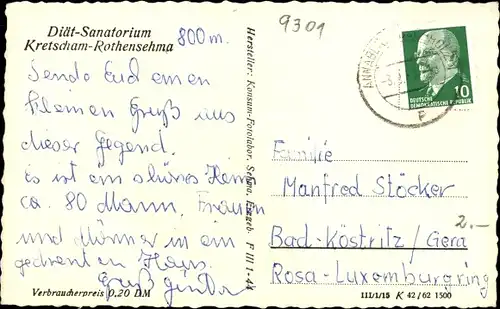 Diät-Sanatorium
Kretscham-Rothensehma
800m.
9301
Sende Euch einen
kleinen Gruß aus
dieser Gegend.
Es ist ein schönes Heim
ca. 80 Mann, Frauen
und Männer in ein
Haus.
Gruß Günter
Verbraucherpreis 0.20 DM
Hersteller: Konsum-Fotolabor, Sehma, Erzgeb. F III 1-
ANNABERG
10
DEUTSCHE
DEMOKRATISCHE REPUBLIK
Familie
Manfred Stöcker
2.-
Bad-Köstritz/Gera
Rosa-Luxemburgring
III/1/15 K 42/62 1500